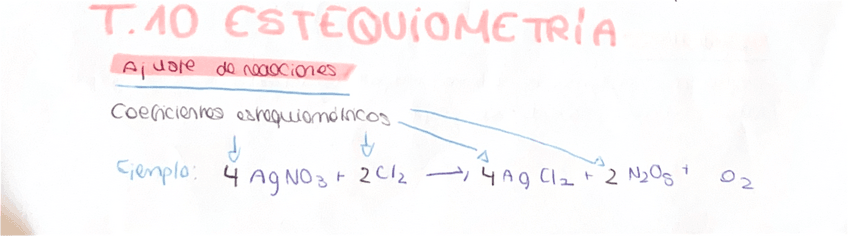 T.10 ESTEQUIOMETRÍA
Ajuste de reacciones
Coeficientes estequiométricos
Ejemplo: 4 AgNO₃ + 2Cl₂ → 4AgCl₂ + 2 N₂O₅ + O₂